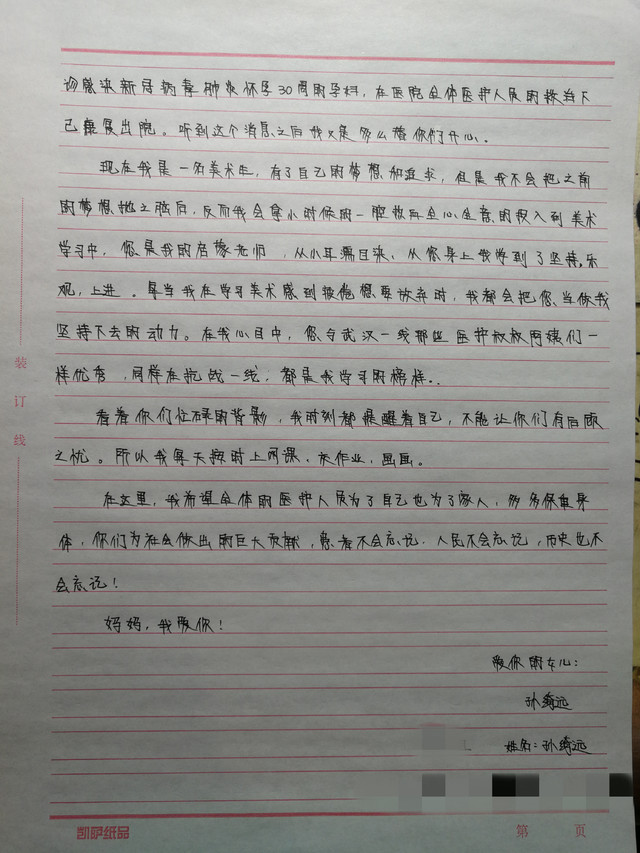 诊感染新冠病毒肺炎怀孕30周的孕妇，在医院全体医护人员的救治下
已康复出院。听到这个消息之后我又是多么替你们开心。
现在我是一名美术生，有了自己的梦想和追求，但是我不会把之前
的梦想抛之脑后，反而我会拿小时候的一腔热血全心全意的投入到美术
学习中，您是我的启蒙老师，从小耳濡目染，从您身上我学到了坚持，乐
观，上进。每当我在学习美术感到疲倦想要放弃时，我都会把您当做我
坚持下去的动力。在我心目中，您与武汉一线那些医护叔叔阿姨们一
样优秀，同样在抗战一线，都是我学习的榜样..
看着你们忙碌的背影，我时刻都提醒着自己，不能让你们有后顾
之忧。所以我每天按时上网课、交作业、画画。
在这里，我希望全体的医护人员为了自己也为了家人，多多保重身
体，你们为社会做出的巨大贡献，患者不会忘记，人民不会忘记，历史也不
会忘记！
妈妈，我爱你！
爱你的女儿：
孙绮远
姓名：孙绮远
装
订
线
凯萨纸品
第 页